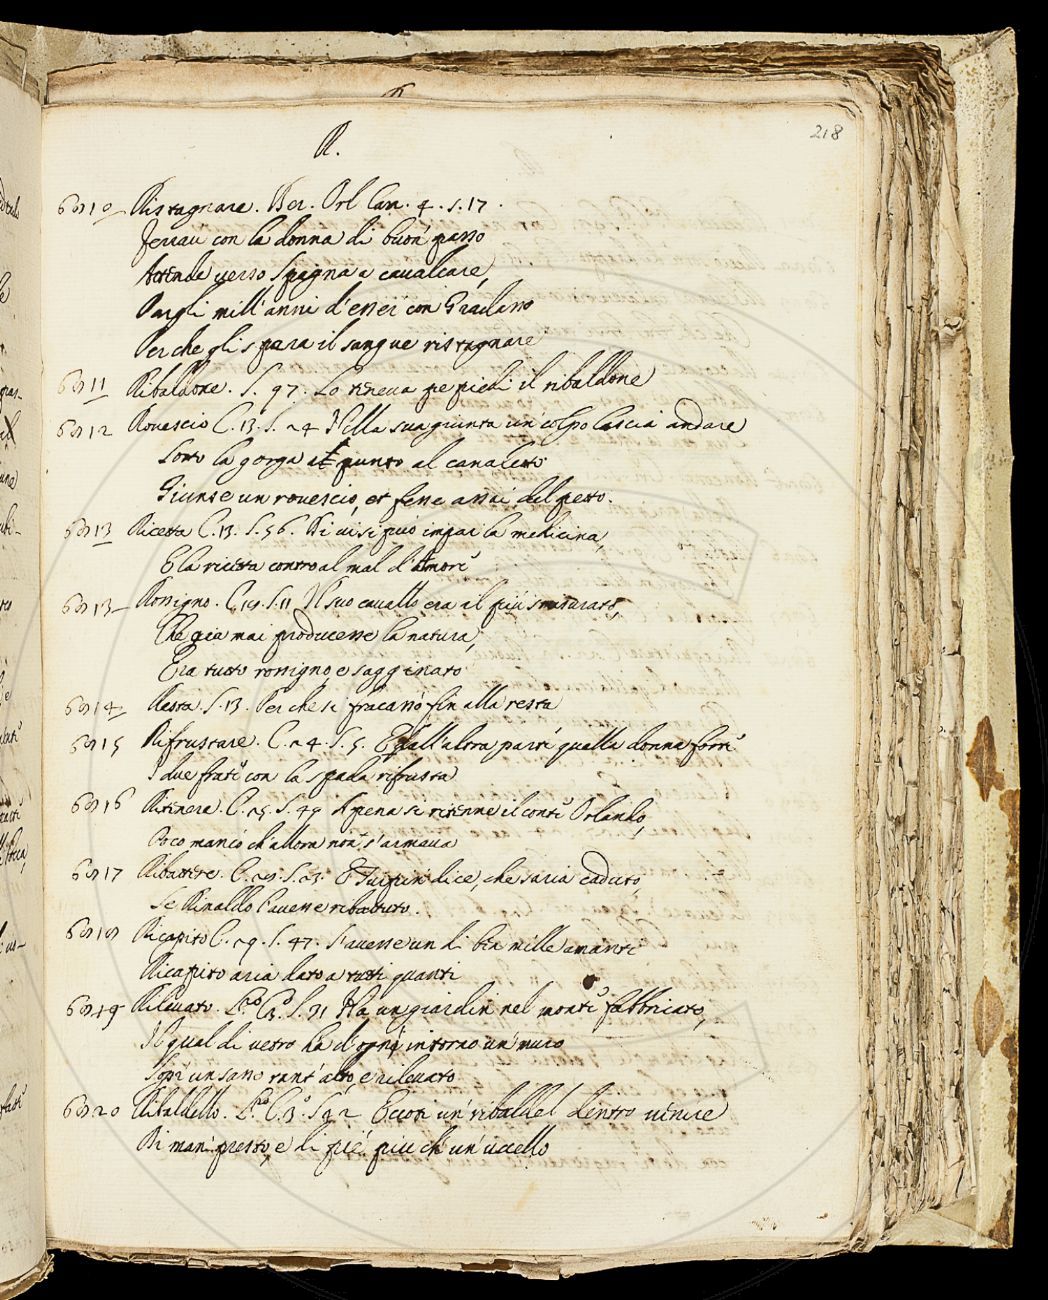 218
R.
6910 Ristagnare. Ber. Orl. Can. 4. S. 17.
Ferrau con la donna di buon passo
Attende verso Spagna a cavalcare,
Pargli mill'anni d'esser con Gradasso
Perche gli spera il sangue ristagnare
6911 Ribaldone. S. 97. Lo teneva pe piedi il ribaldone
6912 Rovescio C. 13. S. 24 Nella sua giunta un colpo lascia andare
Sotto la gorga at punto al canaletto
Giunse un rovescio, et fene assai del petto.
6913 Ricetta C. 13. S. 56. Di vi si puo impar la medicina,
E la ricetta contro al mal d'Amore
6913 Rossigno. C. S. 11 Il suo cavallo era il più smisurato,
Che gia mai producesse la natura,
Era tutto rossigno, e sagginato
6914 Resta S. 13. Perche si fracassò fin alla resta
6915 Rifrustare. C. 24. S. 5. E dall'altra parte quella donna forte
I due frati con la spada rifrusta
6916 Ritenere. C. 25. S. 49 Apena si ritenne il conte Orlando,
Poco mancò ch'allora non s'armava
6917 Ribattere. C. S. 23. E Turpin dice, che saria caduto,
Se Rinaldo l'avesse ribattuto.
6918 Ricapito C. 29. S. 47. S'avesse un dì ben mille amanti
Ricapito aria dato a tutti quanti
6919 Rilevato. P.º C. S. 31 Ha un giardin nel monte fabbricato,
Il qual di vetro ha d'ogni intorno un muro
Sopr un sasso tant'alto, e rilevato
6920 Ribaldello. P.º C. 3.º S. 42 Eccoti un ribaldel dentro venire
Di man presto, e di piè più ch'un uccello